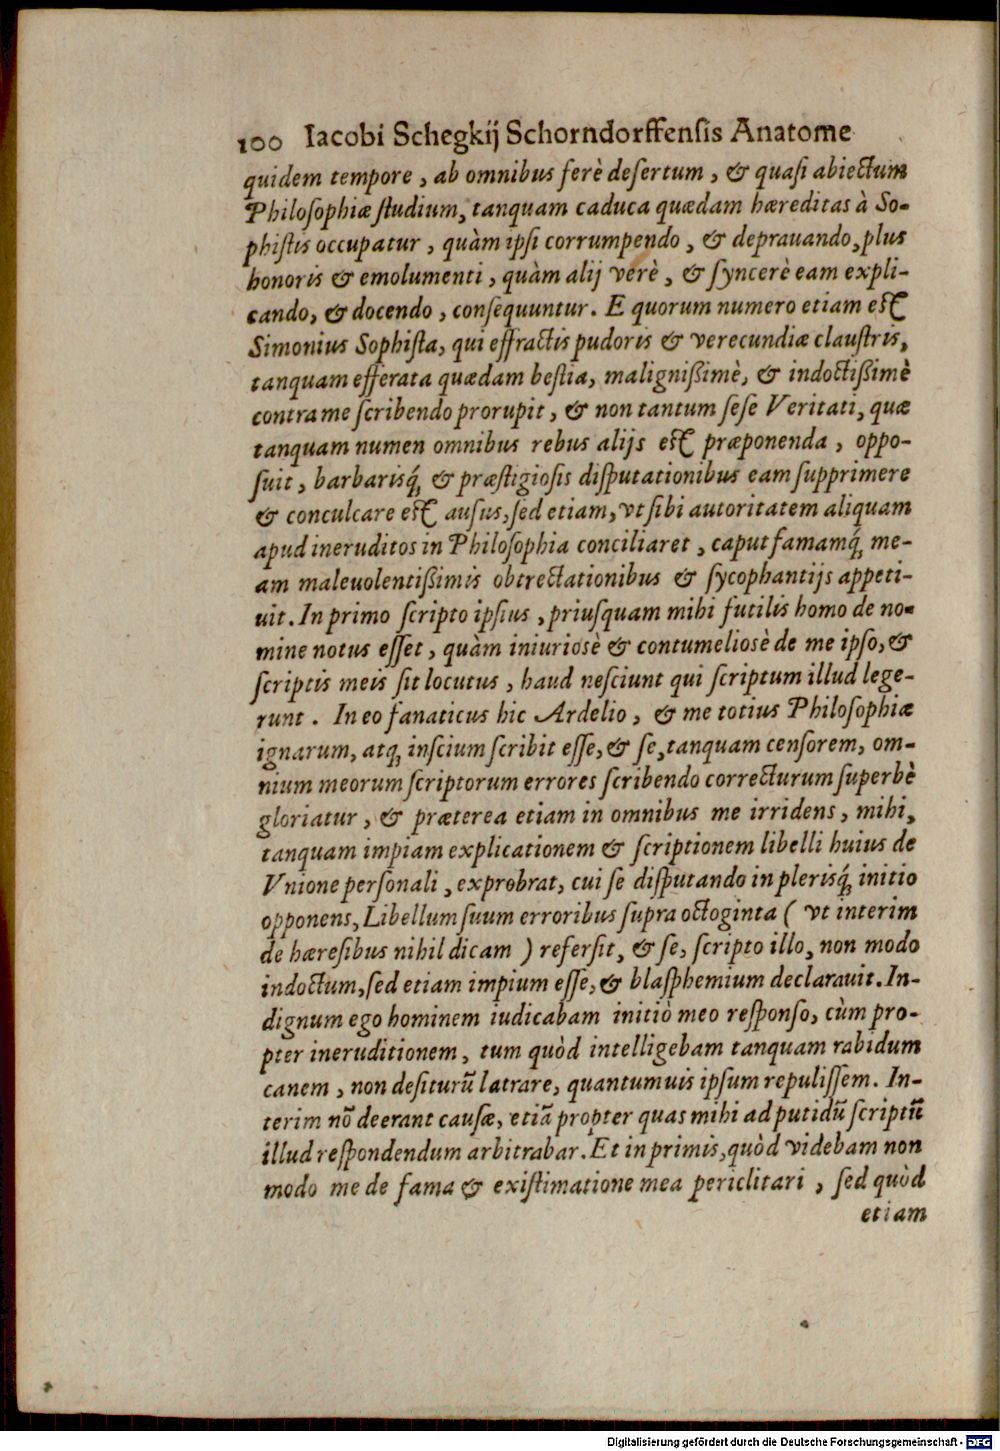 100 Iacobi Schegkij Schorndorffensis Anatome
quidem tempore, ab omnibus ferè desertum, & quasi abiectum
Philosophiæ studium, tanquam caduca quædam hæreditas à So-
phistis occupatur, quàm ipsi corrumpendo, & deprauando, plus
honoris & emolumenti, quàm alij verè, & syncerè eam expli-
cando, & docendo, consequuntur. E quorum numero etiam est
Simonius Sophista, qui effractis pudoris & verecundiæ claustris,
tanquam efferata quædam bestia, malignißimè, & indoctißimè
contra me scribendo prorupit, & non tantum sese Veritati, quæ
tanquam numen omnibus rebus alijs est præponenda, oppo-
suit, barbarisq́; & præstigiosis disputationibus eam supprimere
& conculcare est ausus, sed etiam, vt sibi autoritatem aliquam
apud ineruditos in Philosophia conciliaret, caput famamq́; me-
am maleuolentißimis obtrectationibus & sycophantijs appeti-
uit. In primo scripto ipsius, priusquam mihi futilis homo de no-
mine notus esset, quàm iniuriosè & contumeliosè de me ipso, &
scriptis meis sit locutus, haud nesciunt qui scriptum illud lege-
runt. In eo fanaticus hic Ardelio, & me totius Philosophiæ
ignarum, atq; inscium scribit esse, & se, tanquam censorem, om-
nium meorum scriptorum errores scribendo correcturum superbè
gloriatur, & præterea etiam in omnibus me irridens, mihi,
tanquam impiam explicationem & scriptionem libelli huius de
Vnione personali, exprobrat, cui se disputando in plerisq́; initio
opponens, Libellum suum erroribus supra octoginta ( vt interim
de hæresibus nihil dicam ) refersit, & se, scripto illo, non modo
indoctum, sed etiam impium esse, & blasphemium declarauit. In-
dignum ego hominem iudicabam initiò meo responso, cùm pro-
pter ineruditionem, tum quòd intelligebam tanquam rabidum
canem, non desiturũ latrare, quantumuis ipsum repulissem. In-
terim nõ deerant causæ, etiã propter quas mihi ad putidũ scriptũ
illud respondendum arbitrabar. Et in primis, quòd videbam non
modo me de fama & existimatione mea periclitari, sed quòd
etiam
Digitalisierung gefördert durch die Deutsche Forschungsgemeinschaft - DFG